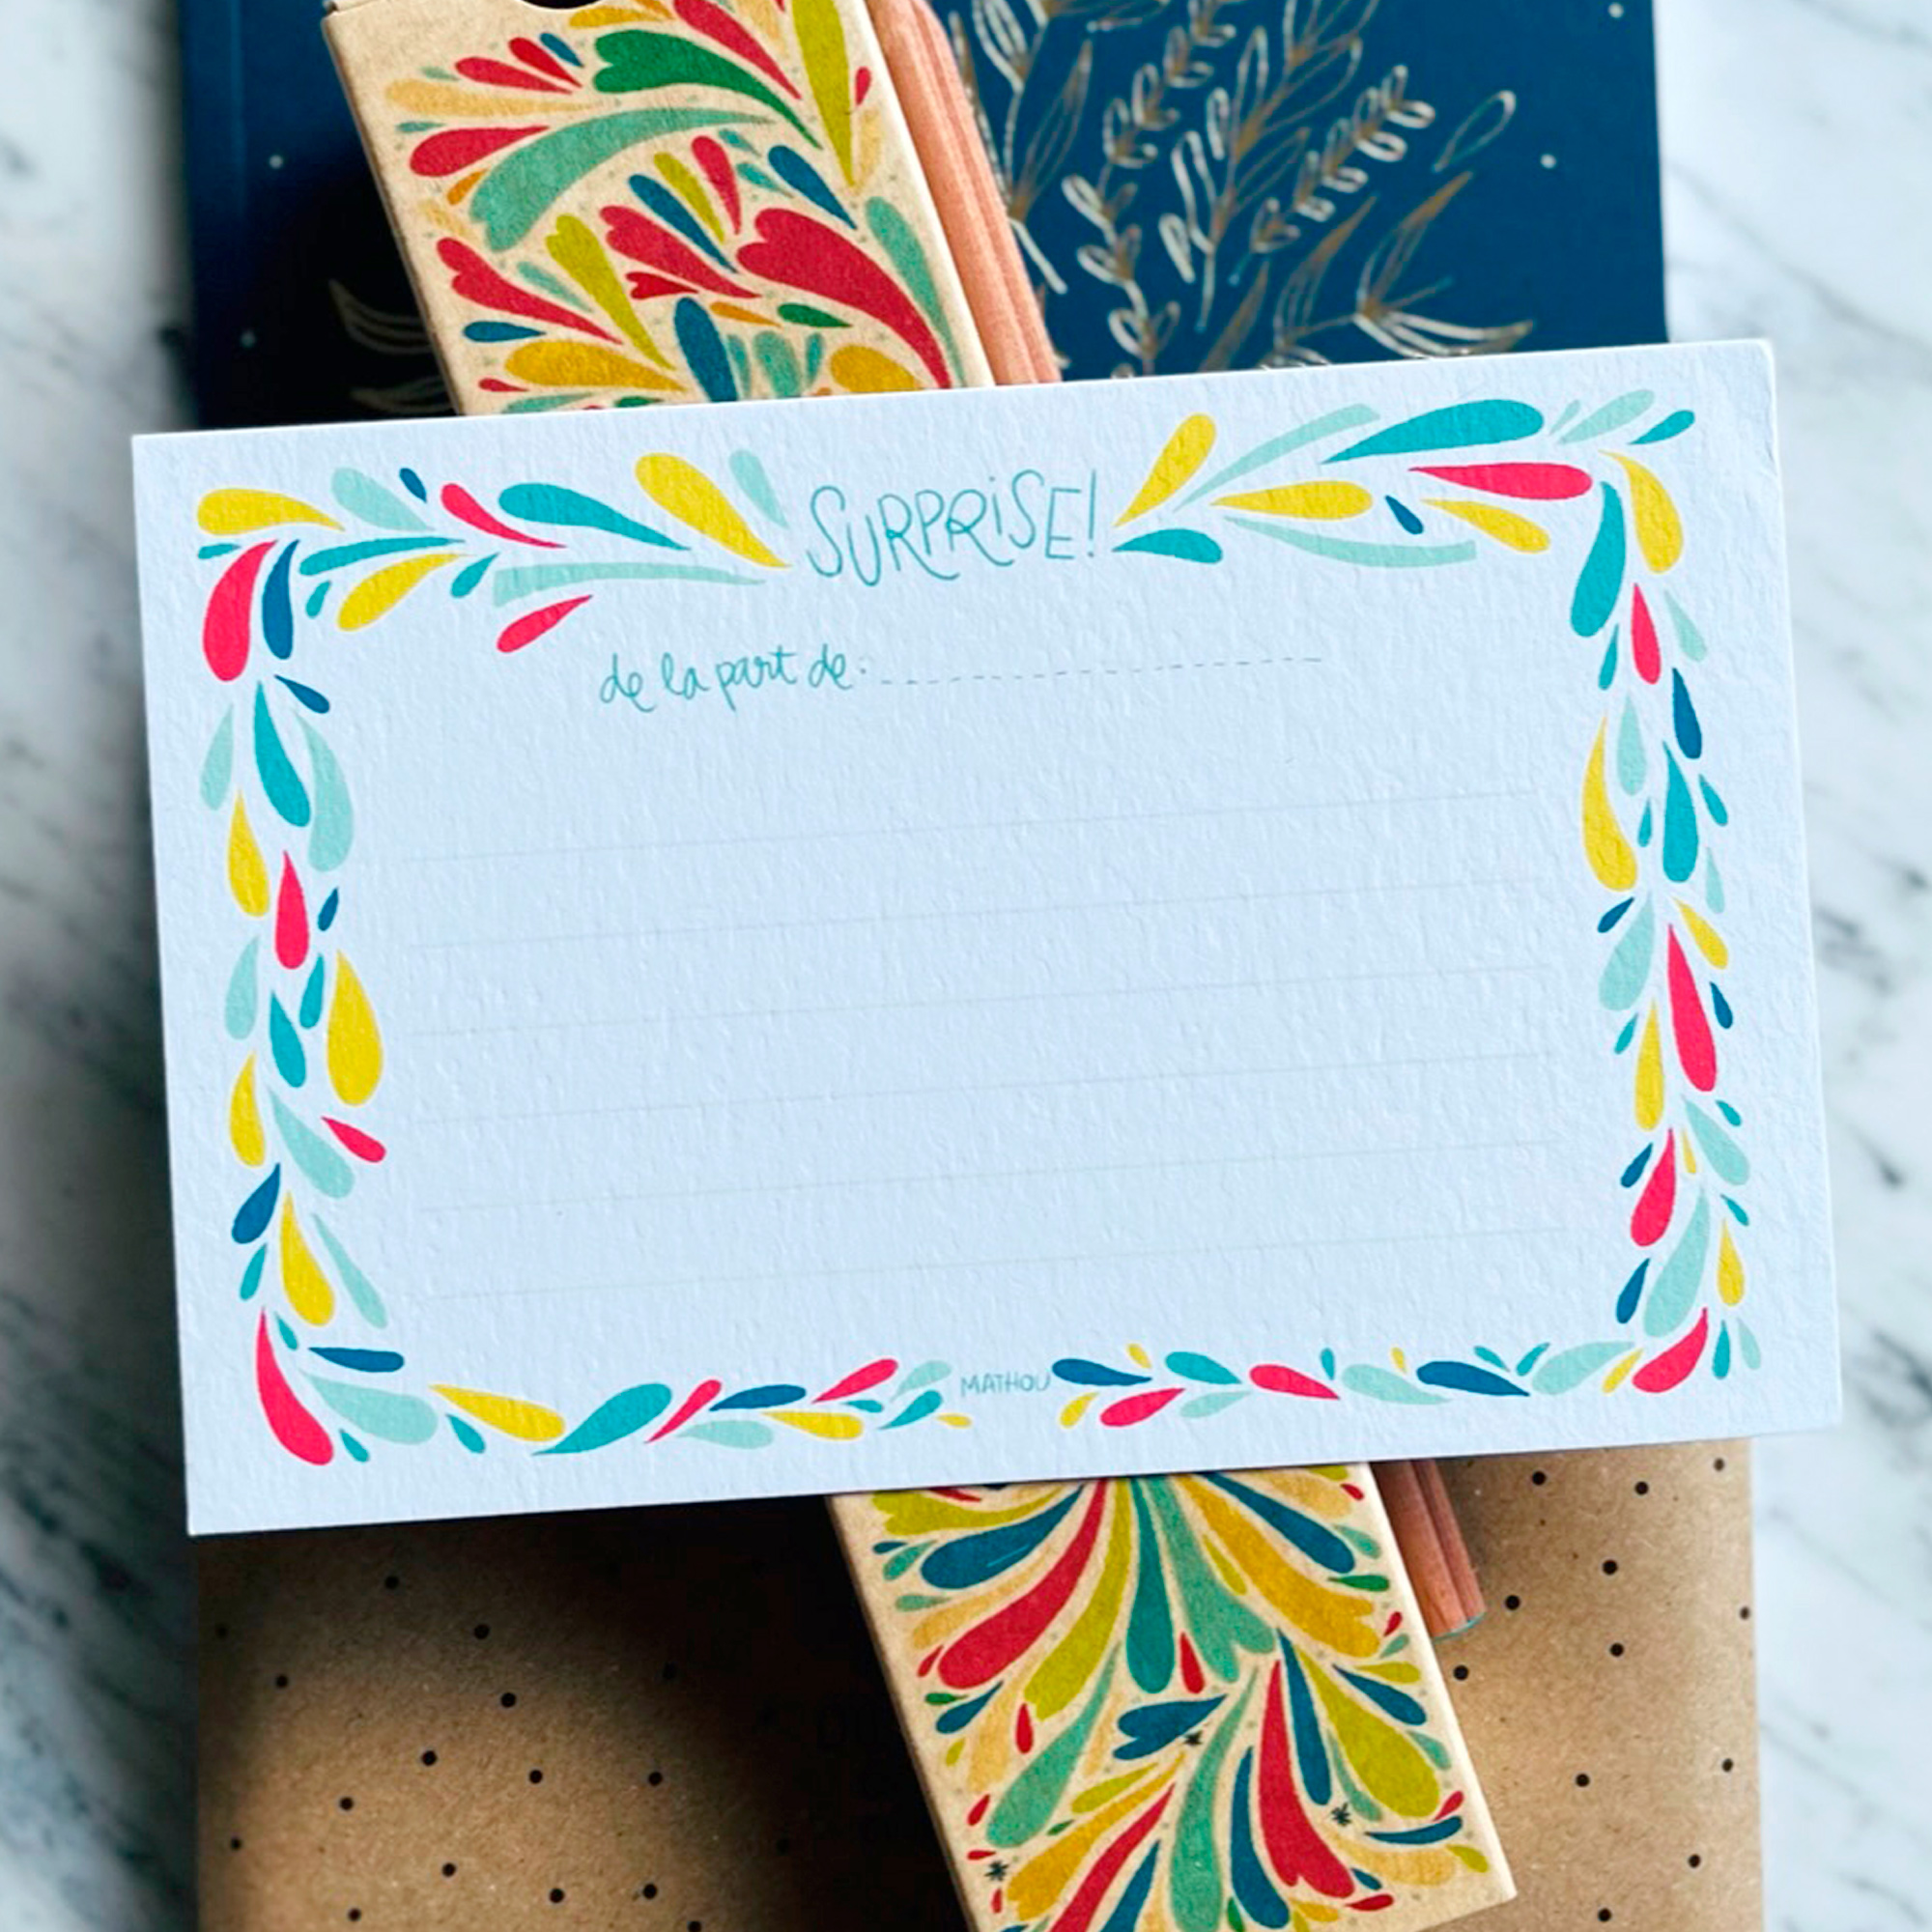 SURPRiSE!
de la part de:
MATHOU